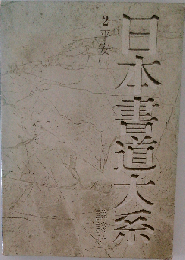 日本書道大系
2 平安